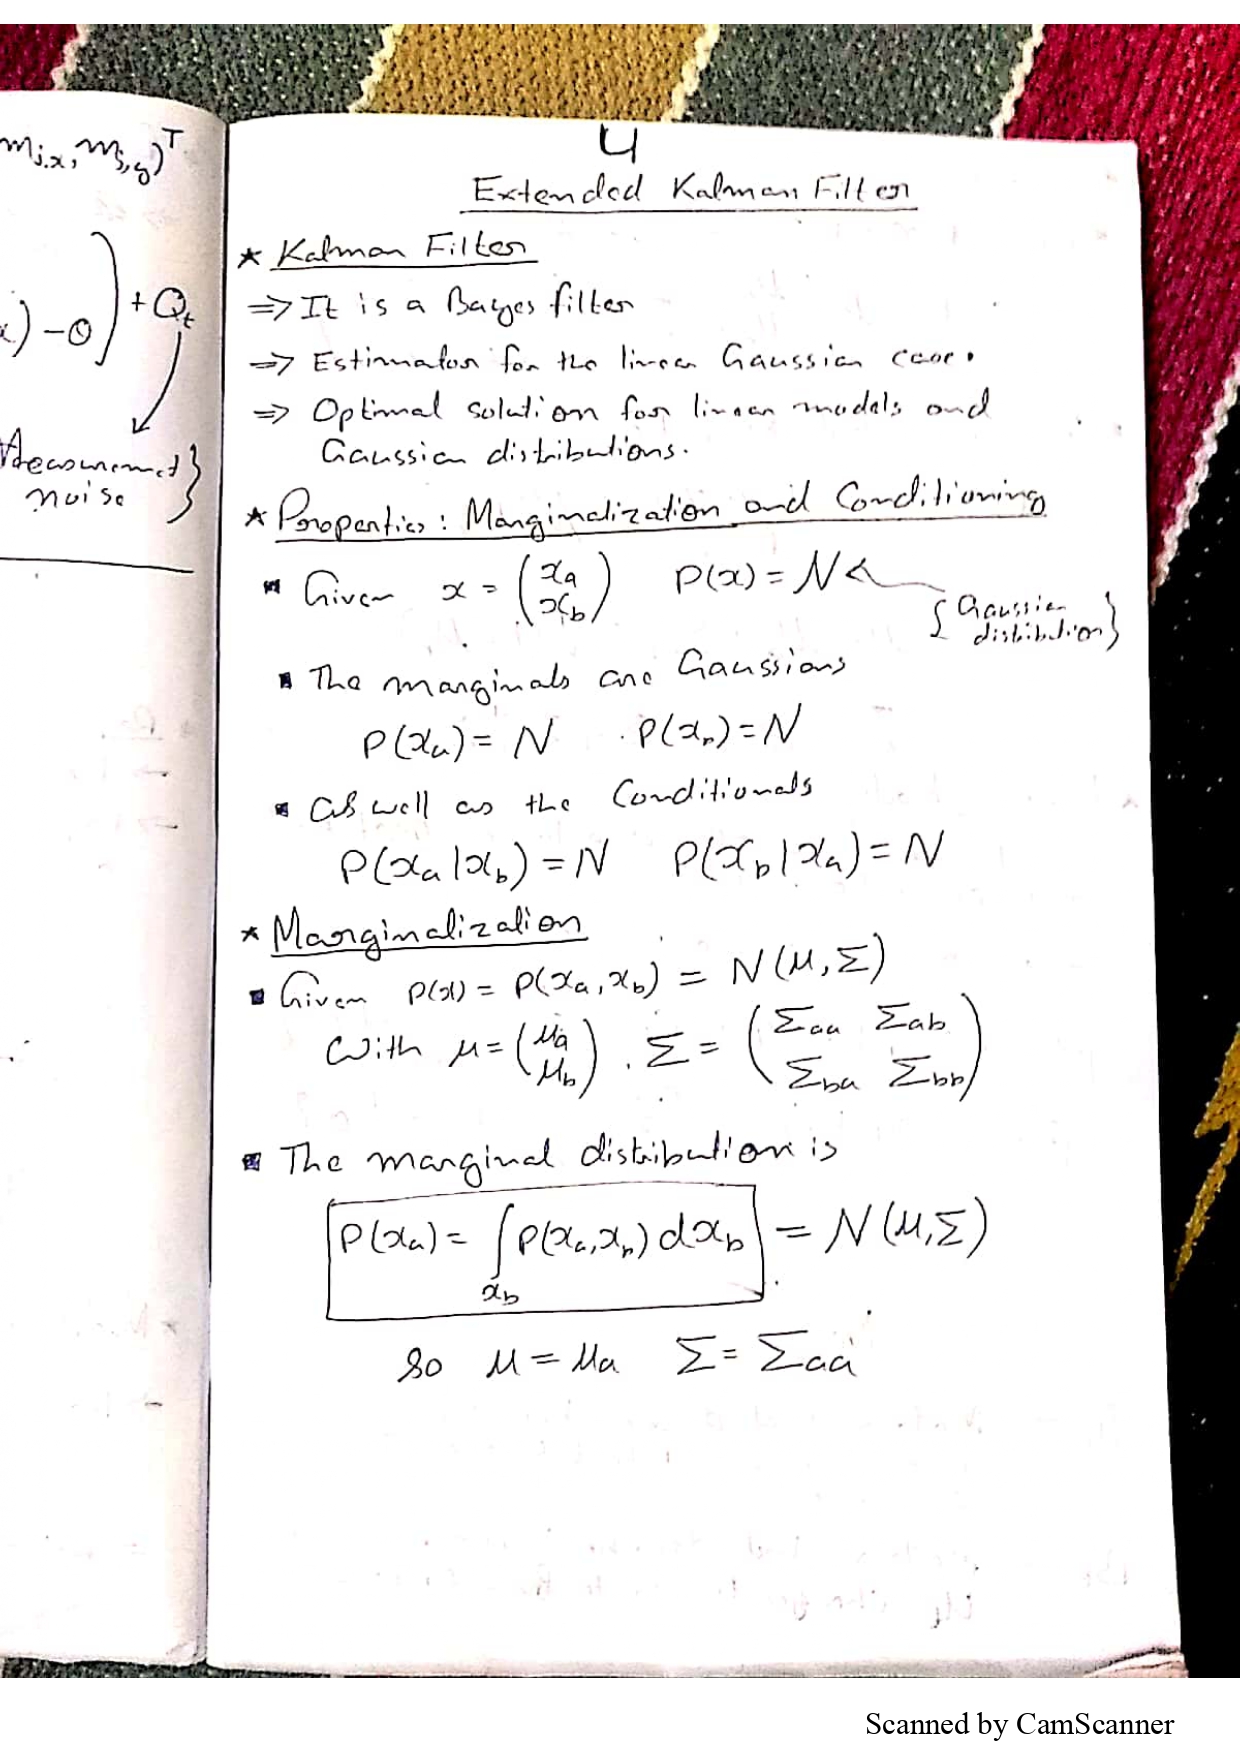 m_{j,x}, m_{j,y})^T
) - θ) + Q_t
Measurement
noise }
4
Extended Kalman Filter
* Kalman Filter
⇒ It is a Bayes filter
⇒ Estimator for the linear Gaussian case.
⇒ Optimal solution for linear models and
Gaussian distributions.
* Properties: Marginalization and Conditioning
▪ Given x = (x_a x_b) P(x) = N
{Gaussian
distribution}
▪ The marginals are Gaussians
P(x_a) = N P(x_b) = N
▪ as well as the Conditionals
P(x_a | x_b) = N P(x_b | x_a) = N
* Marginalization
▪ Given P(x) = P(x_a, x_b) = N(μ, Σ)
With μ = (μ_a μ_b) . Σ = (Σ_aa Σ_ab Σ_ba Σ_bb)
▪ The marginal distribution is
P(x_a) = ∫_{x_b} P(x_a, x_b) dx_b = N(μ, Σ)
So μ = μ_a Σ = Σ_aa
Scanned by CamScanner